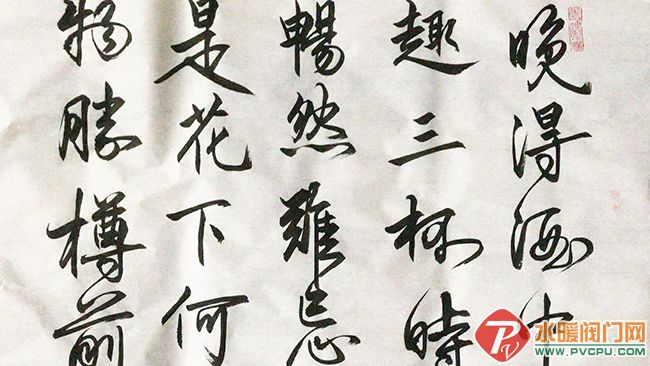 晚得酒中
趣三杯時
暢然難忘
是花下何
物勝樽前
水暖阀门网
WWW.PVCPU.COM